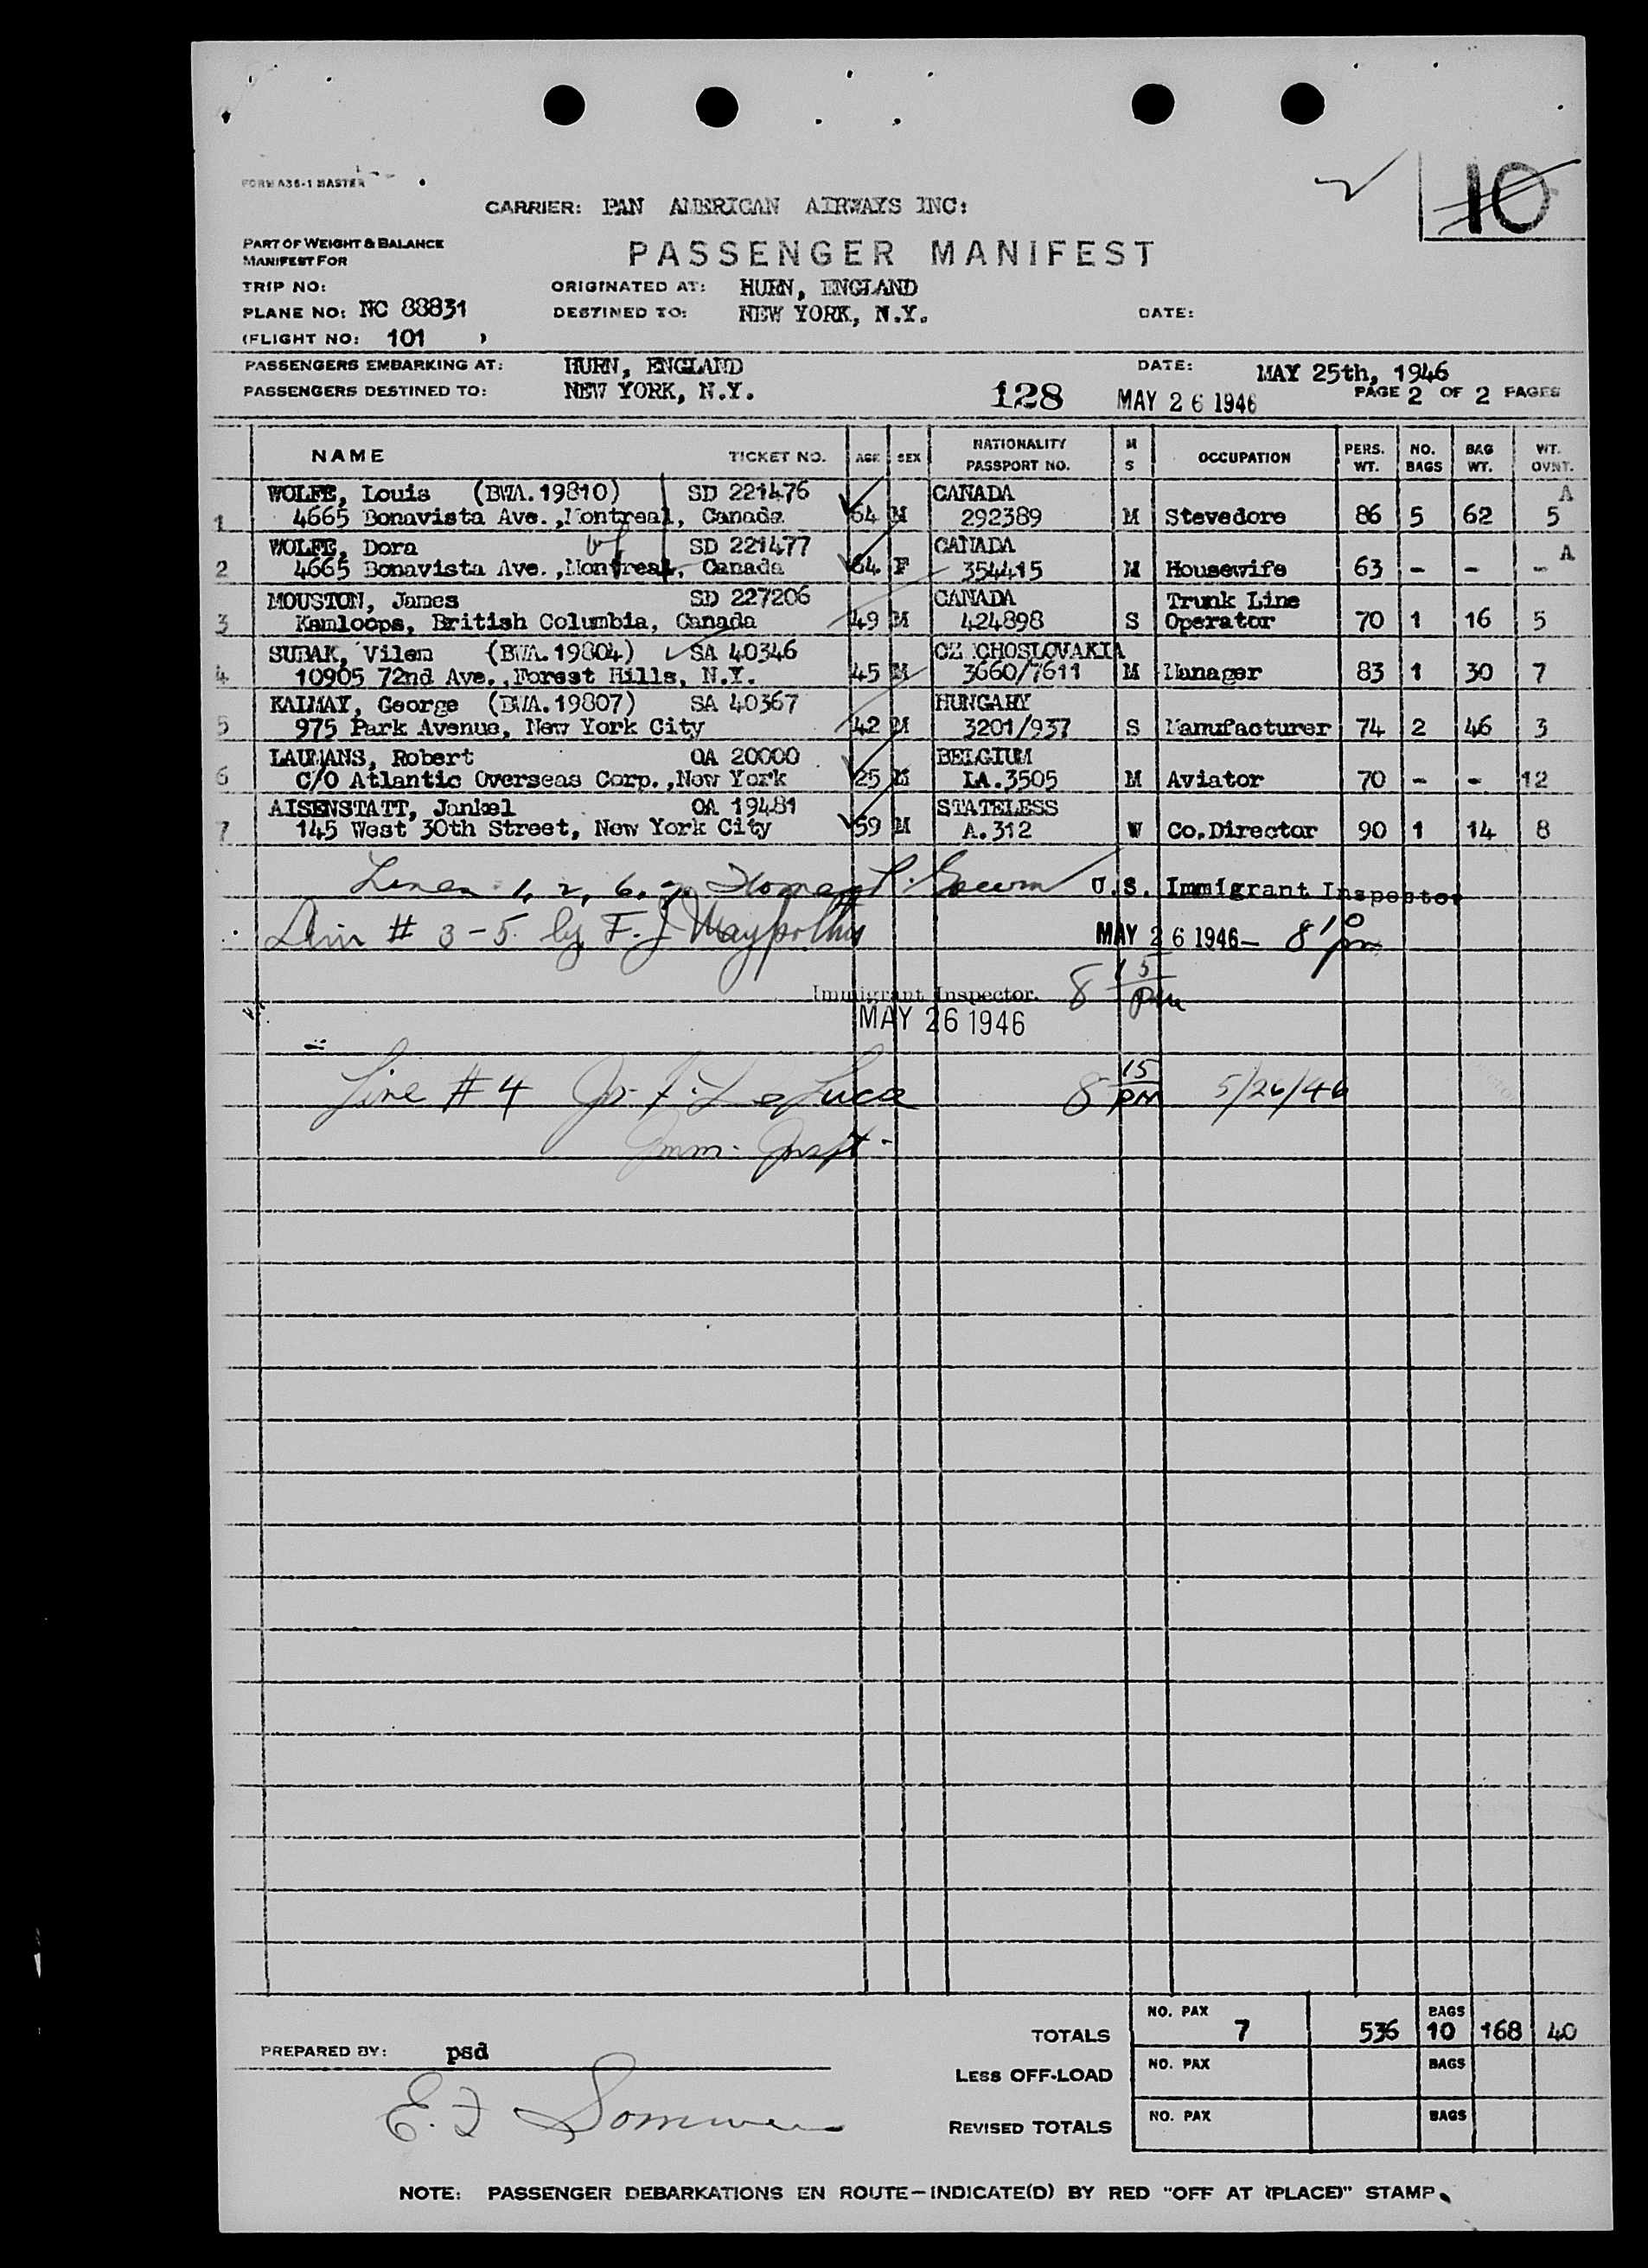 FORM A36-1 MASTER
10
CARRIER: PAN AMERICAN AIRWAYS INC:
PART OF WEIGHT & BALANCE
MANIFEST FOR
PASSENGER MANIFEST
TRIP NO: ORIGINATED AT: HURN, ENGLAND
PLANE NO: NC 88831 DESTINED TO: NEW YORK, N.Y. DATE:
(FLIGHT NO: 101 )
PASSENGERS EMBARKING AT: HURN, ENGLAND DATE: MAY 25th, 1946
PASSENGERS DESTINED TO: NEW YORK, N.Y. 128 MAY 26 1946 PAGE 2 OF 2 PAGES
NAME TICKET NO. AGE SEX NATIONALITY PASSPORT NO. M S OCCUPATION PERS. WT. NO. BAGS BAG WT. WT. OVNT.
WOLFE, Louis (BWA.19810) SD 221476 CANADA A
1 4665 Bonavista Ave.,Montreal, Canada 64 M 292389 M Stevedore 86 5 62 5
WOLFE, Dora SD 221477 CANADA A
2 4665 Bonavista Ave.,Montreal, Canada 64 F 354415 M Housewife 63 - - -
MOUSTON, James SD 227206 CANADA Trunk Line
3 Kamloops, British Columbia, Canada 49 M 424898 S Operator 70 1 16 5
SUBAK, Vilem (BWA.19804) SA 40346 CZ CHOSLOVAKIA
4 10905 72nd Ave.,Forest Hills, N.Y. 45 M 3660/7611 M Manager 83 1 30 7
KALMAY, George (BWA.19807) SA 40367 HUNGARY
5 975 Park Avenue, New York City 42 M 3201/937 S Manufacturer 74 2 46 3
LAUMANS, Robert OA 20000 BELGIUM
6 C/O Atlantic Overseas Corp.,New York 25 M LA.3505 M Aviator 70 - - 12
AISENSTATT, Jankel OA 19481 STATELESS
7 145 West 30th Street, New York City 59 M A.312 W Co.Director 90 1 14 8
Lines 1, 2, 6, 7. U.S. Immigrant Inspector
# 3-5 by F. J. MAY 26 1946 - 8 10 pm
Immigrant Inspector. 8 15 pm
MAY 26 1946
Line # 4 De Luca 8 15 PM 5/26/46
Imm. Inspt.
TOTALS NO. PAX 7 536 BAGS 10 168 40
PREPARED BY: psd
LESS OFF-LOAD NO. PAX BAGS
E. F.
REVISED TOTALS NO. PAX BAGS
NOTE: PASSENGER DEBARKATIONS EN ROUTE—INDICATE(D) BY RED "OFF AT (PLACE)" STAMP.